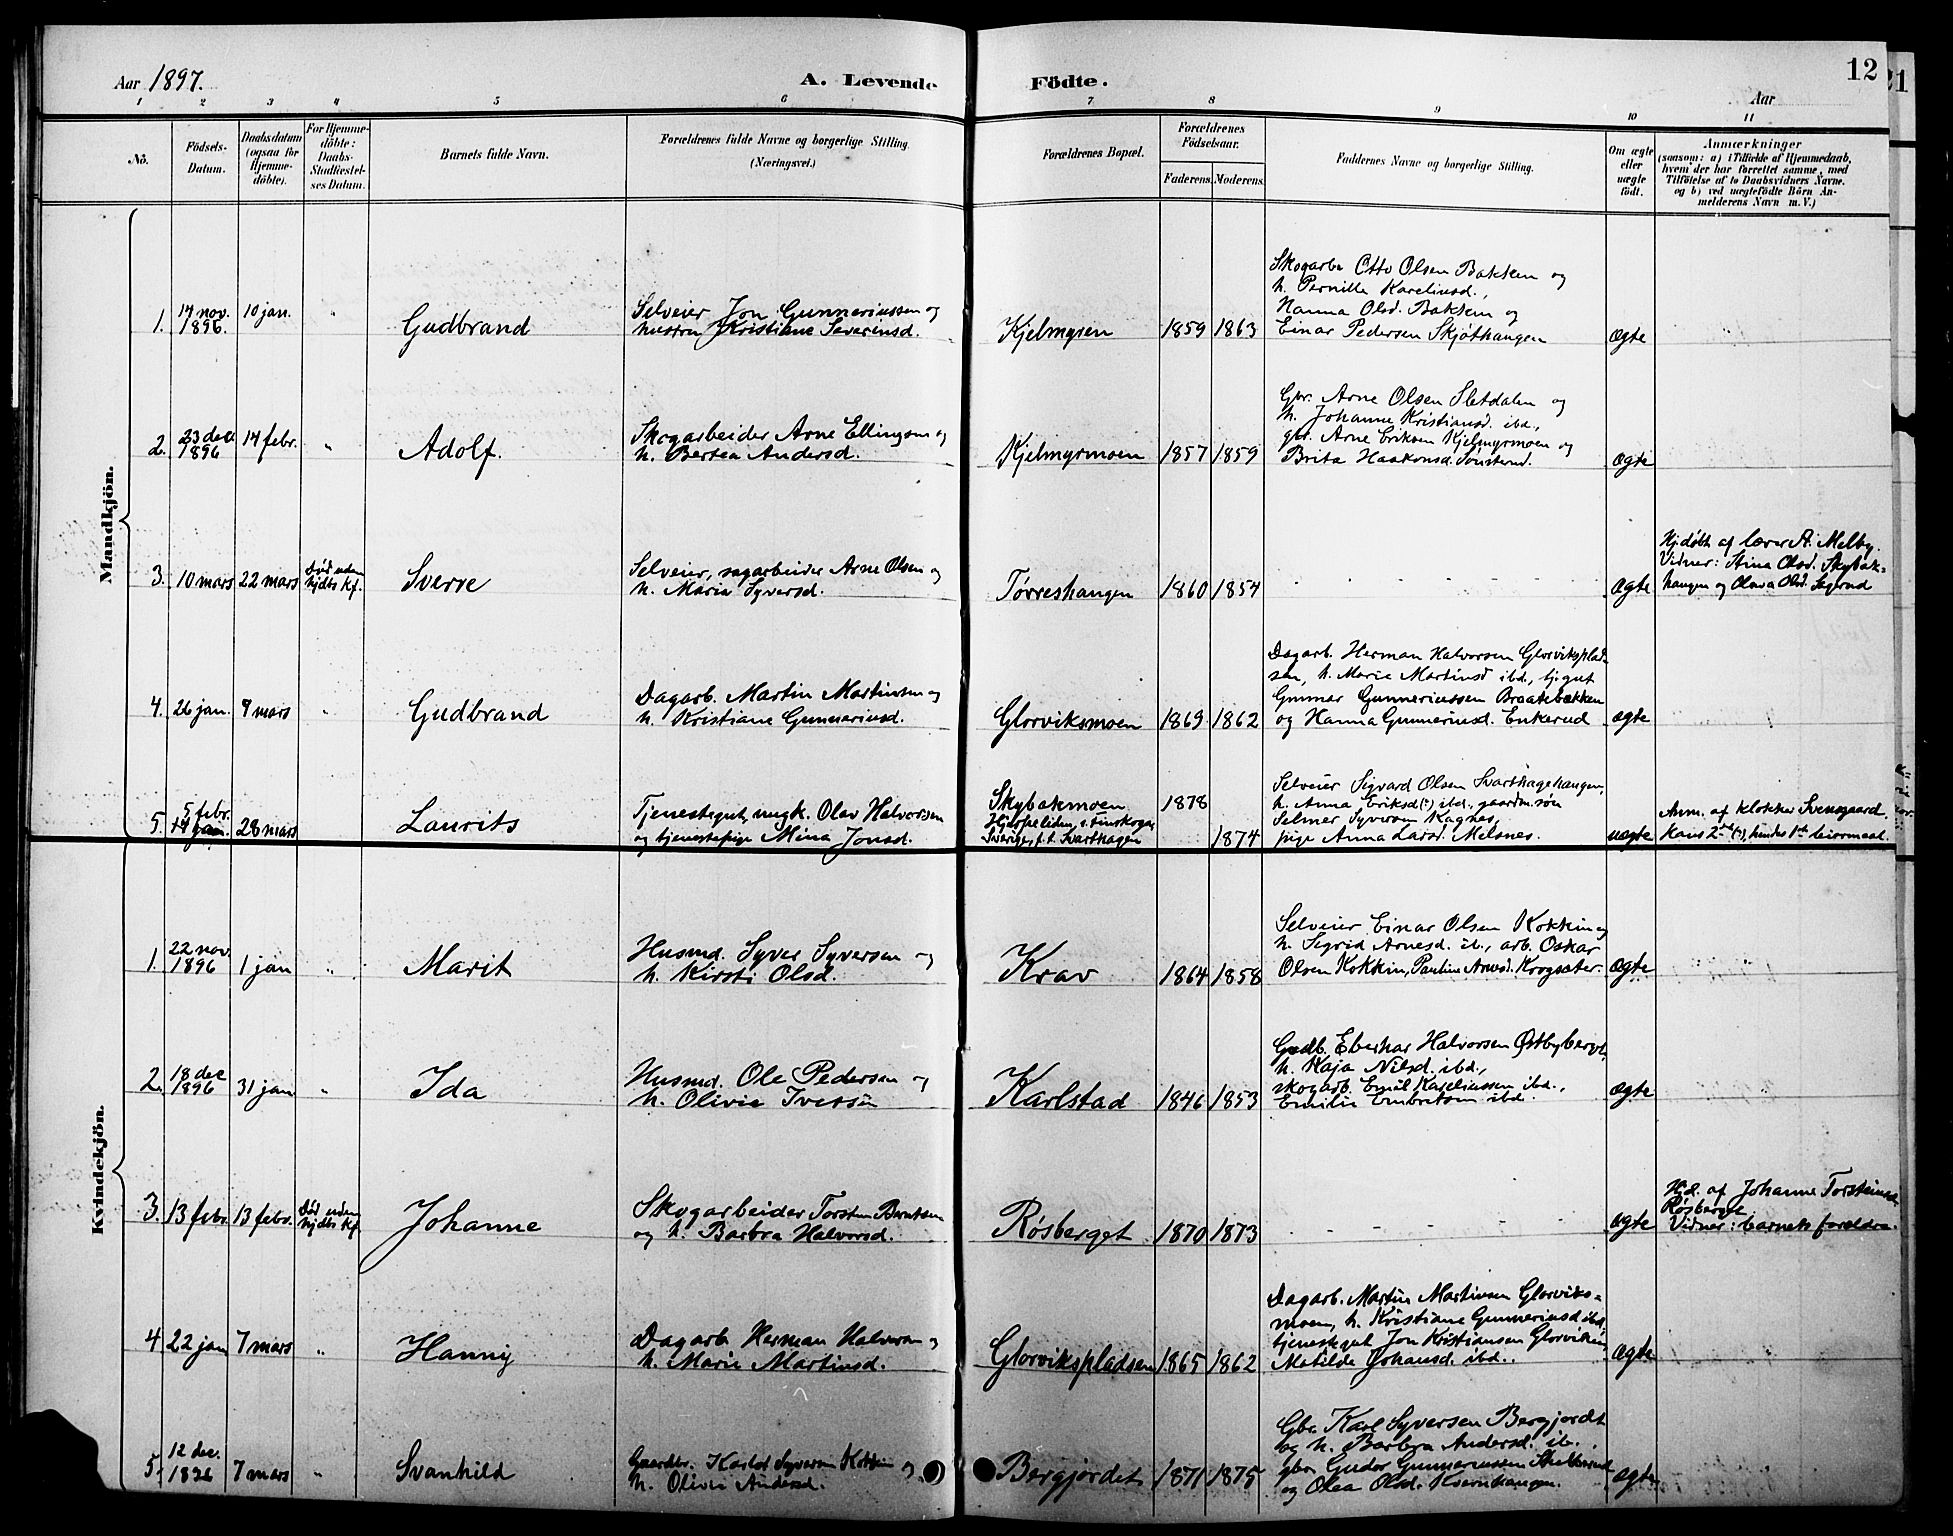 Aar 1897.
A. Levende Födte.
12
Aar
1 2 3 4 5 6 7 8 9 10 11
Nö.
Födsels-
Datum.
Daabsdatum
(ogsaa for
Hjemme-
döbte).
For Hjemme-
döbte:
Daabs-
Stadfæstel-
ses Datum.
Barnets fulde Navn.
Forældrenes fulde Navne og borgerlige Stilling.
(Næringsvei.)
Forældrenes Bopæl.
Forældrenes
Födselsaar.
Faderens. Moderens.
Faddernes Navne og borgerlige Stilling.
Om ægte
eller
uægte
födt.
Anmærkninger
(saasom: a) i Tilfælde af Hjemmedaab,
hvem der har forrettet samme, med
Tilföielse af to Daabsvidners Navne.
og b) ved uægtefödte Börn An-
melderens Navn m. V.)
Mandkjön.
1.
17 nov.
1896.
10 jan.
"
Gudbrand
Selveier Jon Gunneriussen og
hustru Kristiane Severinsd.
Kjelmysen
1859 1863
Skogarb. Otto Olsen Bakken og
h. Pernille Kareliusd.,
Hanna Olsd. Bakken og
Einar Pedersen Skjøthaugen
Ægte
2.
23 dec
1896
14 febr.
"
Adolf.
Skogarbeider Arne Ellingsen og
h. Bertea Andersd.
Kjelmyrmoen
1857 1859
Gbr. Arne Olsen Sletdalen og
h. Johanne Kristiansd. ibd.,
gbr. Arne Eriksen Kjelmyrmoen og
Brita Haakonsd. Sønsterud.
Ægte
3.
10 mars
22 mars
Død uden
hjdbs kf.
Sverre
Selveier, sagarbeider Arne Olsen og
h. Maria Syversd.
Tørreshaugen
1860 1854
- - - - - -
Ægte
Hj.døbt af lærer A. Melby.
Vidner: Stina Olsd. Skybak-
haugen og Olava Olsd. Segerud
4.
26 jan.
9 mars
"
Gudbrand
Dagarb. Martin Martinsen og
h. Kristiane Gunneriusd.
Glorviksmoen
1869 1862
Dagarb. Herman Halvorsen Glorviksplad-
sen, h. Marie Martinsd ibd., tj.gut
Gunnar Gunneriussen Braatebækken
og Hanna Gunneriusd. Enkerud
ægte
5.
5 febr.
14 jan.
28 mars
Laurits
Tjenestegut, musk. Olav Halvorsen
og tjenestepige Mina Jonsd.
Skybakmoen
Sverige, f. t. Svarthagen
1878
1874
Selveier Sigvard Olsen Svarthagehaugen,
h. Anna Eriksd(?) ibd., gaardm.søn
Selmer Syversen Kagnæs,
pige Anna Larsd. Melsnes.
uægte
Anm. af klokker Svensgaard.
Hans 2det(?), hendes 1ste leiermaal.
Kvindekjön.
1.
22 nov.
1896
1 jan
"
Marit
Husmd. Syver Syversen og
h. Kirsti Olsd.
Krav
1864 1858
Selveier Einar Olsen Kokkin og
h. Sigrid Arnesd. ib., arb. Oskar
Olsen Kokkin, Pauline Arnesd. Krogsæter.
Ægte
2.
18 dec
1896
31 jan
"
Ida
Husmd. Ole Pedersen og
h. Olivie Iversen
Karlstad
1846 1853
Gudb. Eberhar Halvorsen Østbyberget,
h. Kaja Nilsd. ibd.,
skogarb. Emil Kareliussen ibd.,
Emilie Embretsen ibd.
Ægte
3.
13 febr.
13 febr.
Død uden
hjdbs kf.
Johanne
Skogarbeider Torsten Berntsen
og h. Barbra Halvorsd.
Røsberget
1870 1873
- - - - -
Ægte
Hd. af Johanne Torsteinsd.
Røsberget
Vidner: barnets foreldre.
4
22 jan
7 mars
"
Hanny
Dagarb. Herman Halvorsen og
h. Marie Martinsd.
Glorvikspladsen
1865 1862
Dagarb. Martin Martinsen Glorviks-
moen, h. Kristiane Gunneriusd ibd.,
tjenestegut Jon Kristiansen Glorviken,
Matilde Johansd. ibd.
Ægte
5.
12 dec.
1896
7 mars
"
Svanhild
Gaardbr. Karlot Syversen Kokkin og
h. Olivie Andersd.
Bergjordet
1871 1875
Gbr. Karl Syversen Bergjordet
og h. Barbra Andersd. ib.
gbr. Gudor Gunneriussen
og Olea Olsd. Kvernhaugen.
Ægte